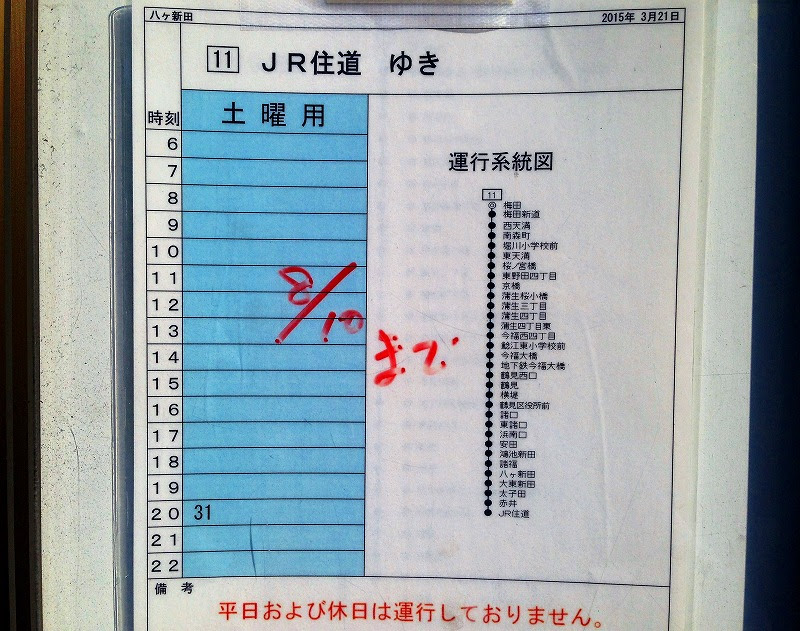 八ヶ新田
2015年 3月21日
11 JR住道 ゆき
時刻 土曜用
6
7
8
9
10
11
12
13
14
15
16
17
18
19
20 31
21
22
8/10
まで
運行系統図
11
梅田
梅田新道
西天満
南森町
堀川小学校前
東天満
桜ノ宮橋
東野田四丁目
京橋
蒲生桜小橋
蒲生三丁目
蒲生四丁目
蒲生四丁目東
今福西四丁目
鯰江東小学校前
今福大橋
地下鉄今福大橋
鶴見西口
鶴見
横堤
鶴見区役所前
諸口
東諸口
浜南口
安田
鴻池新田
諸福
八ヶ新田
大東新田
太子田
赤井
JR住道
備考
平日および休日は運行しておりません。